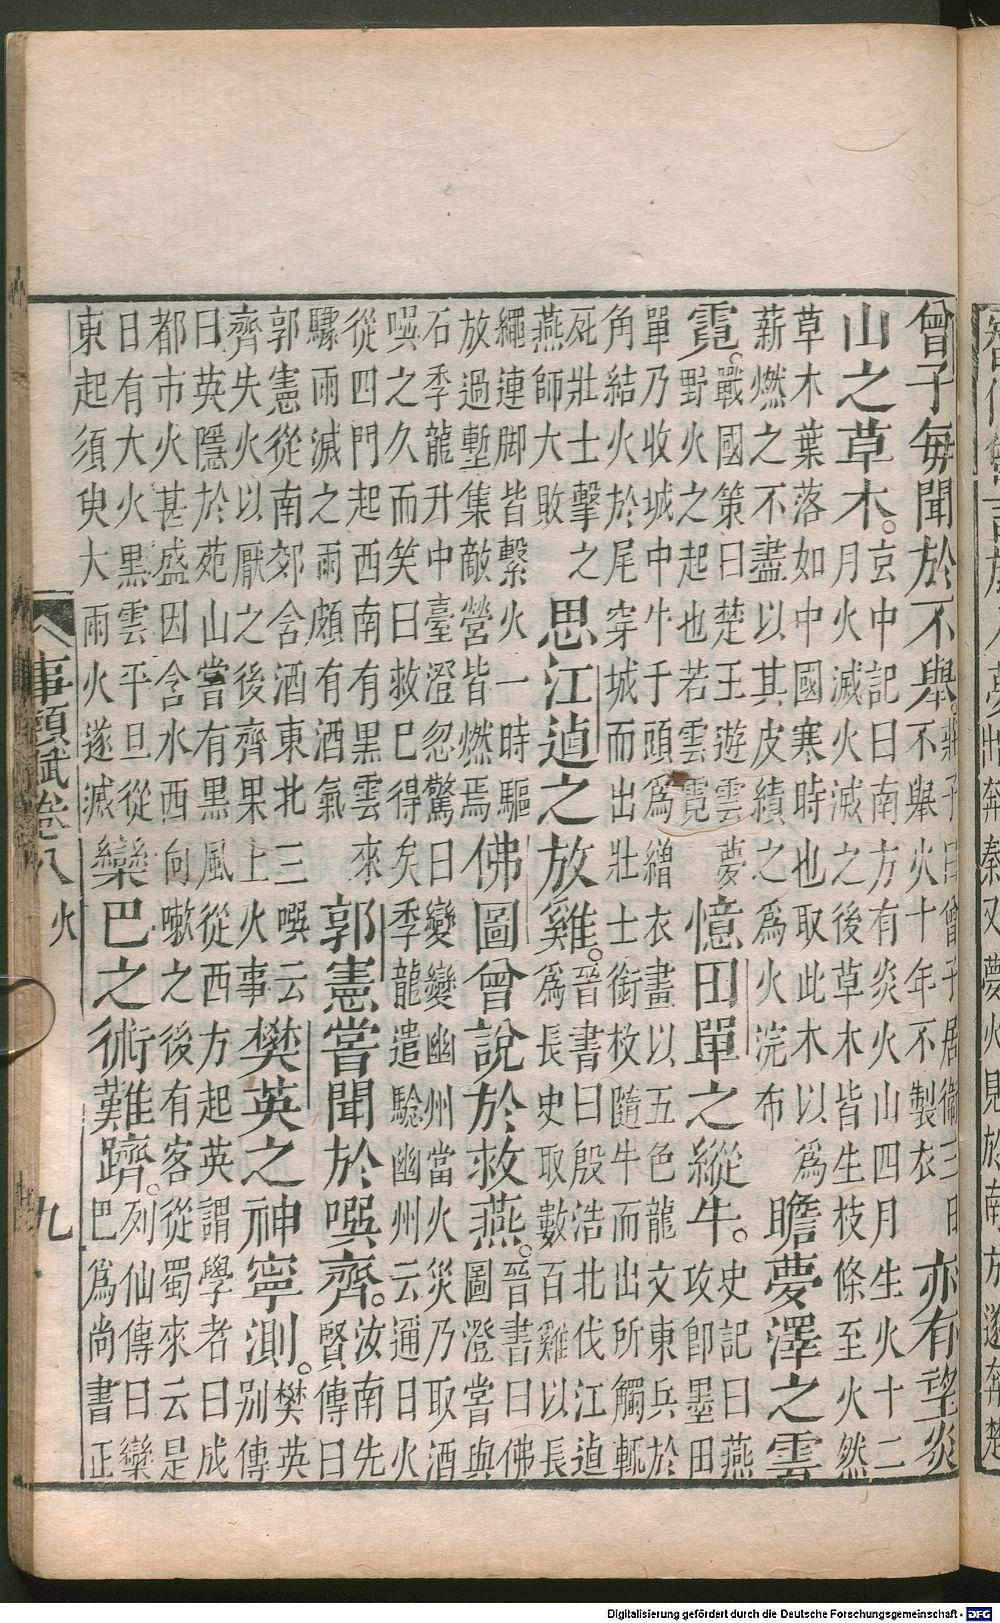 曾子每聞於不舉。莊子曰曾子居衛三日不舉火十年不製衣亦有望炎
山之草木。玄中記曰南方有炎火山四月生火十二月火滅火滅之後草木皆生枝條至火然
草木葉落如中國寒時也取此木以爲薪燃之不盡以其皮績之爲火浣布瞻夢澤之雲
霓。戰國策曰楚王遊雲夢野火之起也若雲霓憶田單之縱牛。史記曰燕攻卽墨田
單乃收城中牛于頭爲繒衣畫以五色龍文東兵於角結火於尾穿城而出壯士銜枚隨牛而出所觸輒
死壯士擊之燕師大敗思江逌之放雞。晉書曰殷浩北伐江逌爲長史取數百雞以長
繩連脚皆繫火一時驅放過塹集敵營皆燃焉佛圖曾說於救燕。晉書曰佛圖澄嘗與
石季龍升中臺澄忽驚曰變變幽州當火災乃取酒噀之久而笑曰救已得矣季龍遣驗幽州云邇日火
從四門起西南有黑雲來驟雨滅之雨頗有酒氣郭憲嘗聞於噀齊。汝南先賢傳曰
郭憲從南郊含酒東北三噀云齊失火以厭之後齊果上火事樊英之神寧測。樊英別傳
曰英隱於苑山嘗有黑風從西方起英謂學者曰成都市火甚盛因含水西向嗽之後有客從蜀來云是
日有大火黑雲平旦從東起須臾大雨火遂滅欒巴之術難躋。列仙傳曰欒巴爲尚書正
事類賦卷八 火 九
奔秦又夢火見於南方遂奔楚
Digitalisierung gefördert durch die Deutsche Forschungsgemeinschaft - DFG